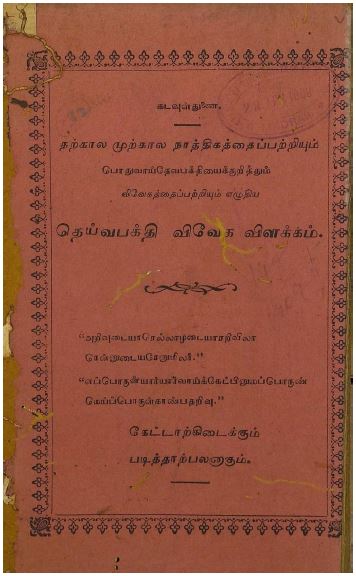 கடவுள்துணை.
தற்கால முற்கால நாத்திகத்தைப்பற்றியும்
பொதுவாய்தேவபக்தியைக்குறித்தும்
விவேகத்தைப்பற்றியும் எழுதிய
தெய்வபக்தி விவேக விளக்கம்.
"அறிவுடையாரெல்லாமுடையாரறிவிலா
ரென்னுடையரேனுமிலர்."
"எப்பொருள்யார்யார்வாய்க்கேட்பினுமப்பொருண்
மெய்ப்பொருள்காண்பதறிவு."
கேட்டாற்கிடைக்கும்
படித்தாற்பலனாகும்.